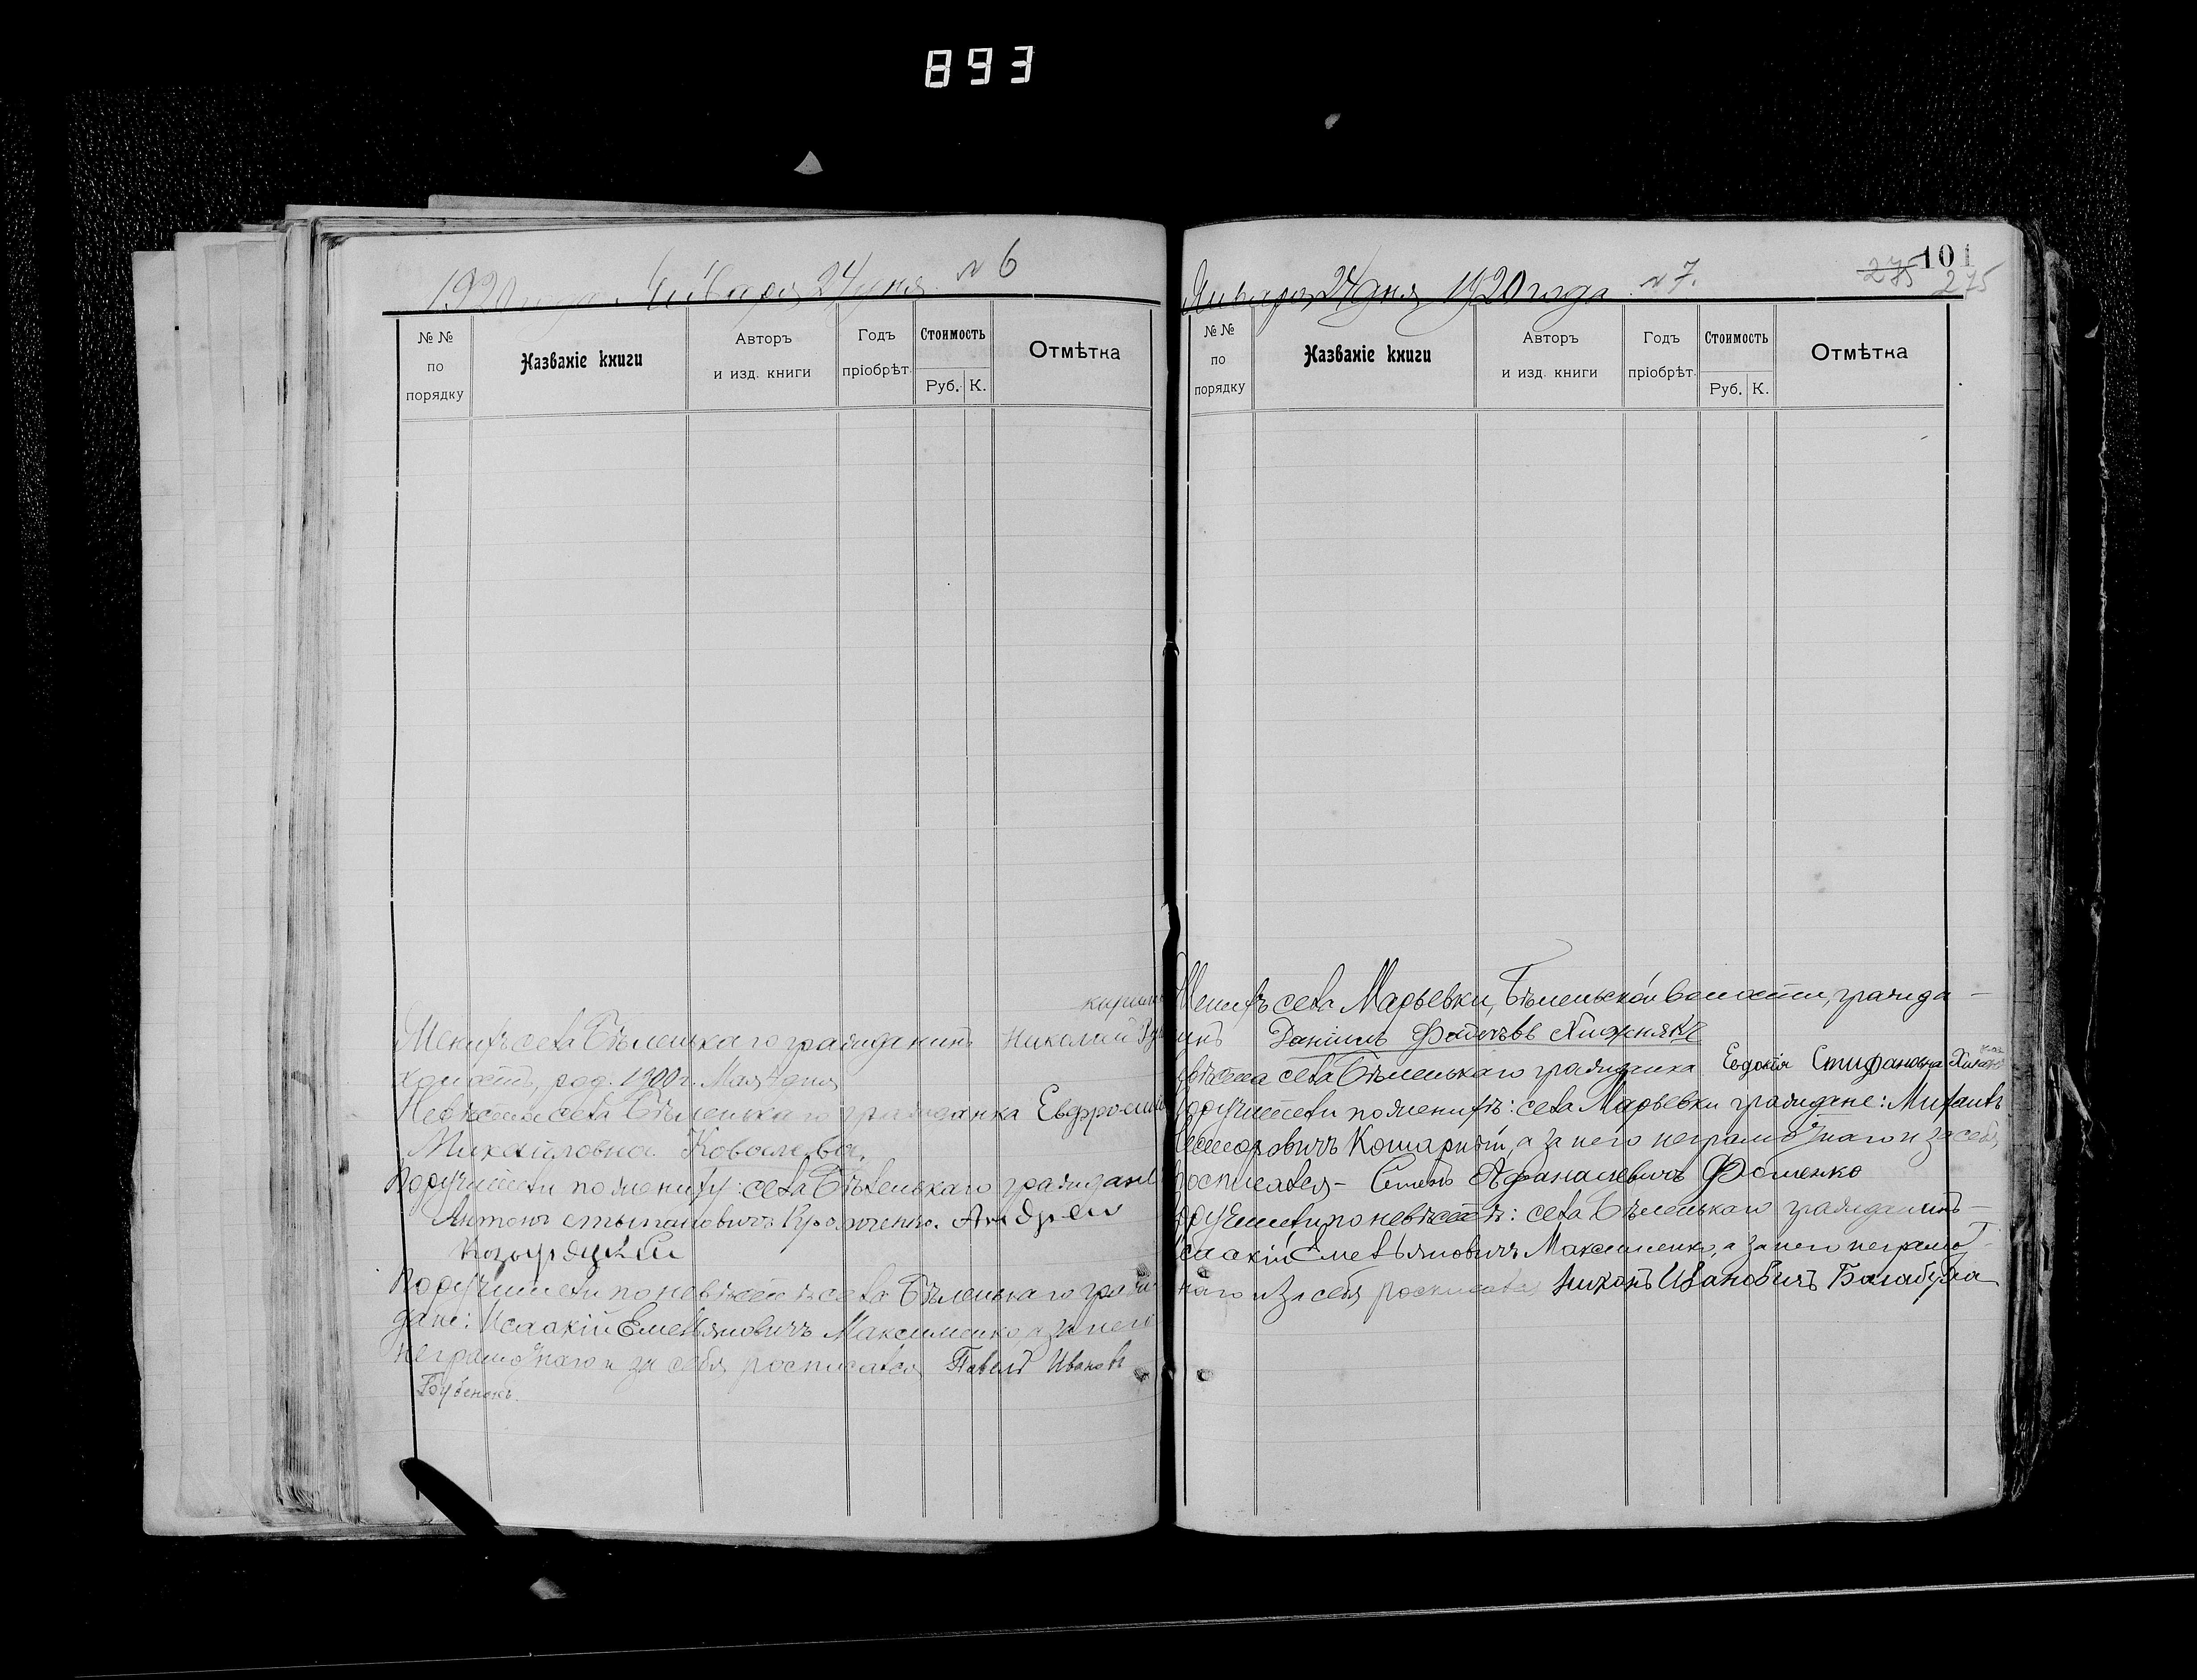 893
1920 года Января 24 дня № 6
№ № по порядку
Названіе книги
Авторъ и изд. книги
Годъ пріобрѣт.
Стоимость
Руб. К.
Отмѣтка
Женихъ села Бѣленькаго гражданинъ Николай
холостъ, род. 1900 г. Мая 4 дня
Невѣста села Бѣленькаго гражданка Евфросинія
Михайловна Ковалева.
Поручители по жениху: села Бѣленькаго граждане
Антонъ Андрей
Поручители по невѣстѣ села Бѣленькаго граж-
дане: Исаакій Емельяновичъ Максименко, а за него
неграмотнаго и за себя росписался Павелъ Ивановъ
Января 24 дня 1920 года № 7.
101
275 275
№ № по порядку
Названіе книги
Авторъ и изд. книги
Годъ пріобрѣт.
Стоимость
Руб. К.
Отмѣтка
Женихъ села Марьевки, Бѣленькой волости, гражда-
инъ Даніилъ Хижнякъ
села Бѣленькаго гражданка Евдокія Стифановна
Поручители по женихѣ: села Марьевки граждане: Михаилъ
Кошарный, а за него неграмотнаго и за себя
росписался – Семенъ Афанасіевичъ Фоменко
Поручители по невѣстѣ: села Бѣленькаго гражданинъ –
Исаакій Емельяновичъ Максименко, а за него неграмот-
наго и за себя росписался Никонъ Ивановичъ Балабуха